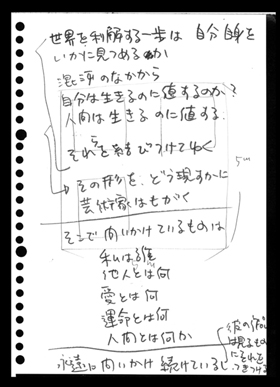 世界を理解する一歩は 自分自身を
いかに見つめるか
混沌のなかから
自分は生きるのに値するのか?
人間は生きるのに値する
それを結びつけてゆく
その形を、どう現すかに
芸術家はもがく
そこで問いかけているものは
私は誰
他人とは何
愛とは何
運命とは何
人間とは何か
永遠に問いかけ続けている
5cm
彼の作品
は見るもの
にそれを